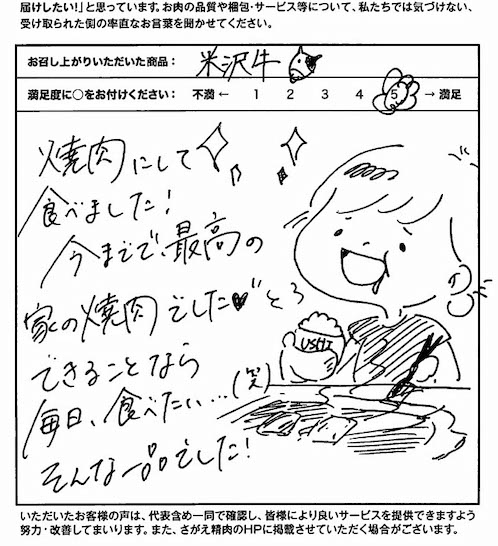 届けしたい！」と思っています。お肉の品質や梱包・サービス等について、私たちでは気づけない、
受け取られた側の率直なお言葉を聞かせてください。
お召し上がりいただいた商品： 米沢牛
満足度に○をお付けください： 不満 ← 1 2 3 4 5 → 満足
焼肉にして
食べました！
今までで、最高の
家の焼肉でした♥
とろ
USHI
できることなら
毎日、食べたい…(笑)
そんな一品でした！
いただいたお客様の声は、代表含め一同で確認し、皆様により良いサービスを提供できますよう
努力・改善してまいります。また、さがえ精肉のHPに掲載させていただく場合がございます。